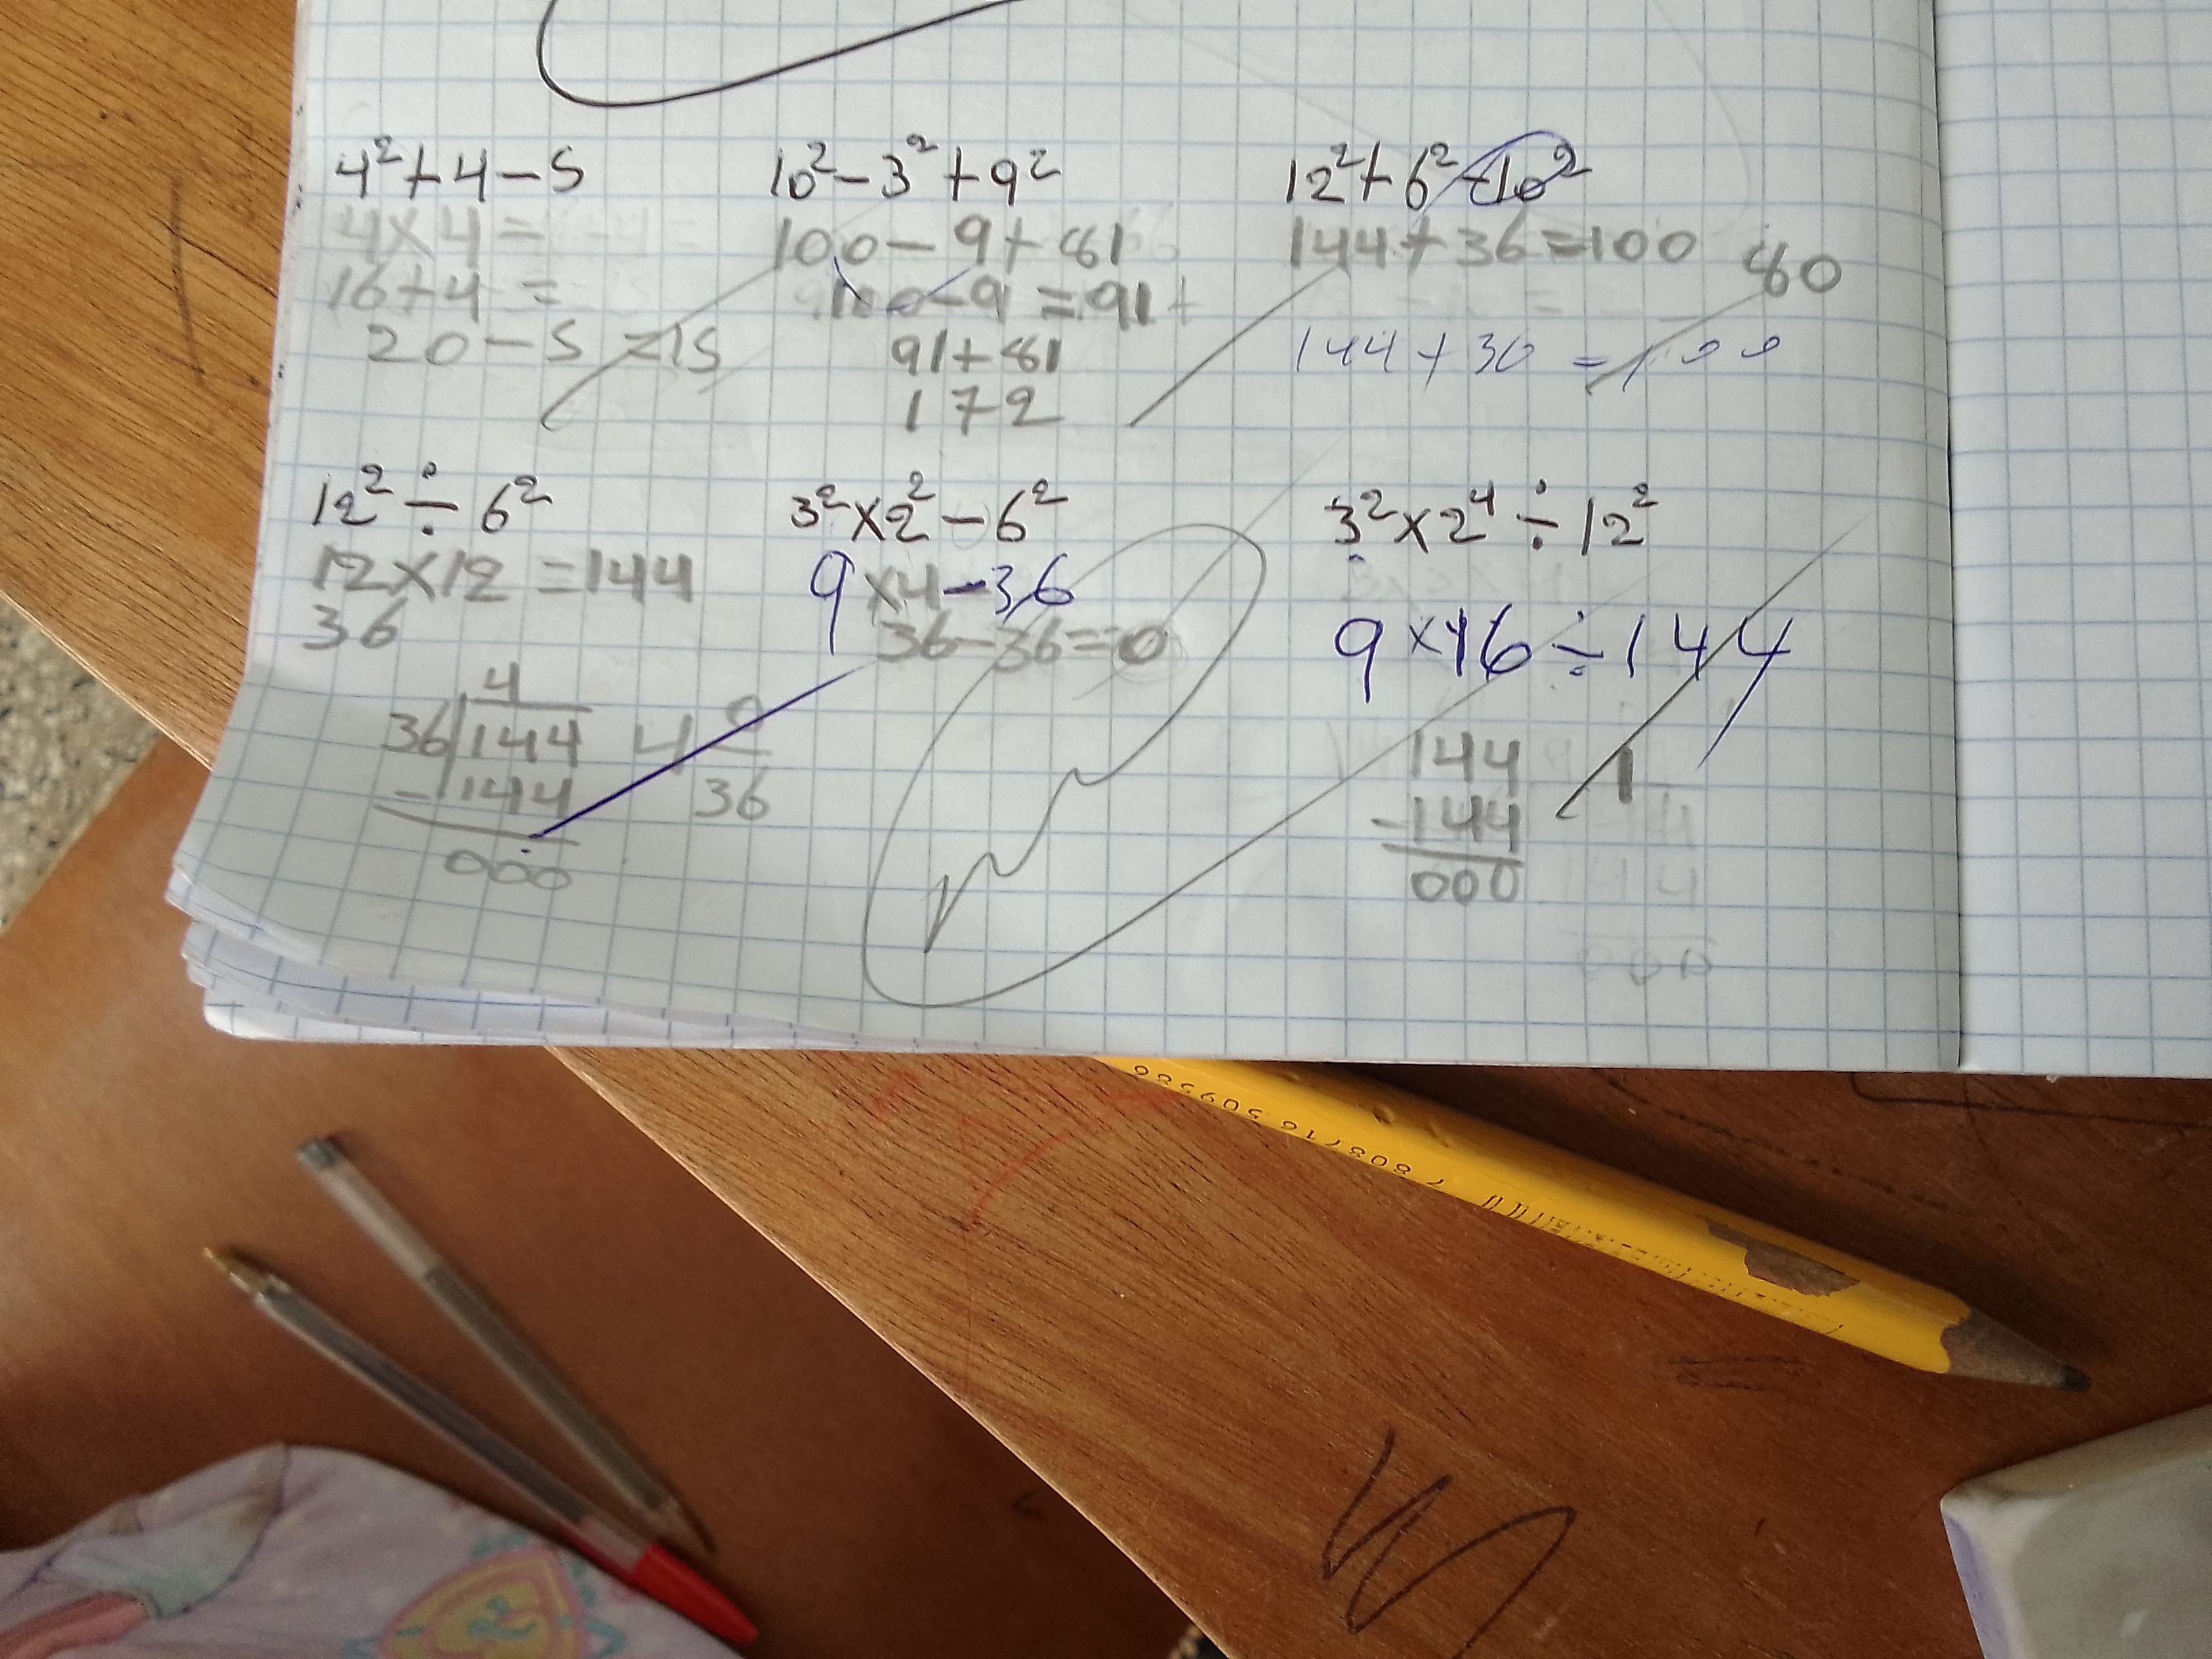 4²+4-5
4×4=
16+4=
20-5=15
10²-3²+9²
100-9+81
100-9=91+
91+81
172
12²+6²-10²
144+36=100
80
144+30=100
12²÷6²
12×12=144
36
4
36 144
-144
000
4 0
36
3²×2²-6²
9×4-36
36-36=0
3²×2⁴÷12²
9×16÷144
144 1
-144
000